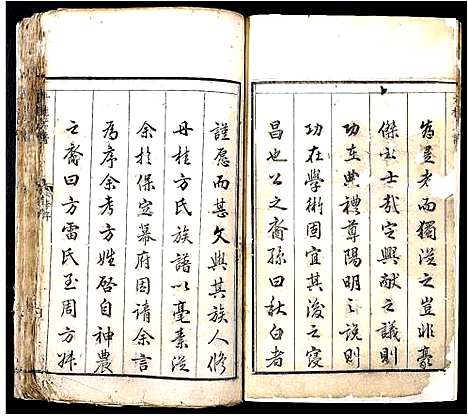 為是者而獨從之豈非豪
傑之士哉定興獻之議則
功在典禮尊陽明之說則
功在學術固宜其後之寖
昌也公之裔孫曰秋白者
謹愿而甚文與其族人修
丹桂方氏族譜以亳素從
余於保定幕府因請余言
為序余考方姓啓自神農
之裔曰方雷氏至周方叔